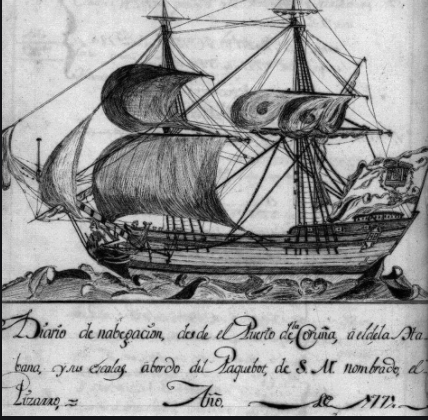 Diario de nabegación, desde el Puerto de la Coruña, a el de la Ha-
bana, y sus escalas, abordo del Paquebot, de S. M. nombrado, el
Pizarro, Año, de 177